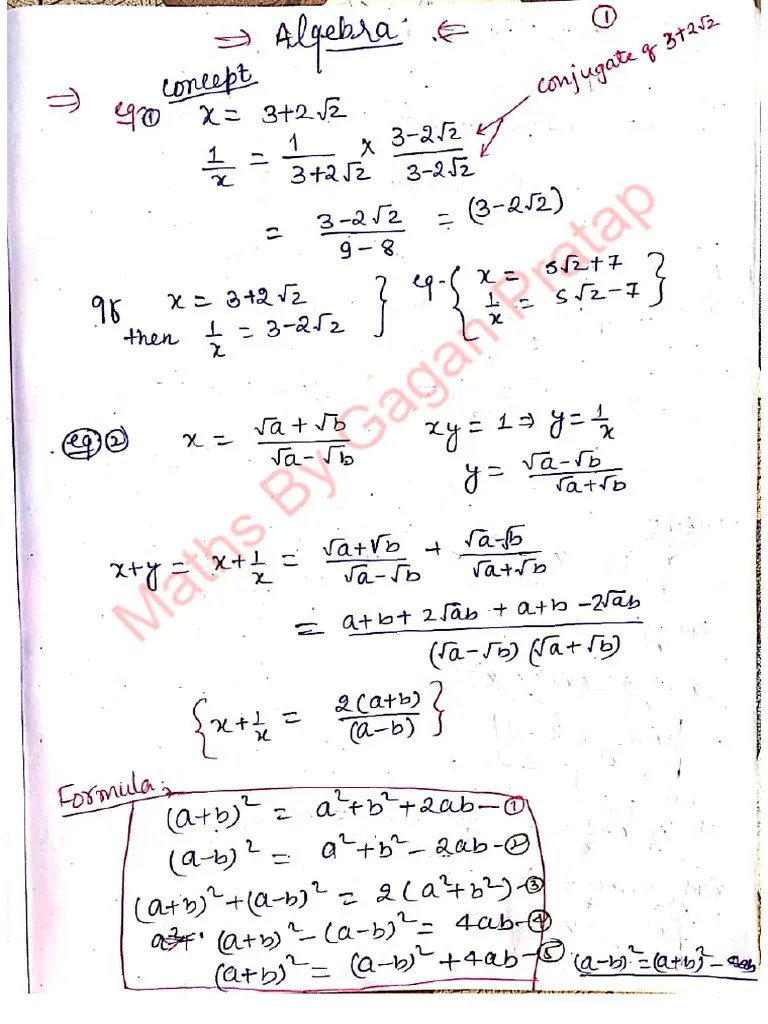 ⇒ Algebra: ⇐ ①
⇒ concept
eg① x = 3+2√2
conjugate of 3+2√2
1/x = 1/(3+2√2) × (3-2√2)/(3-2√2)
= (3-2√2)/(9-8) = (3-2√2)
If x = 3+2√2
then 1/x = 3-2√2 }
eg- { x = 5√2+7
1/x = 5√2-7 }
eg.② x = (√a+√b)/(√a-√b) xy = 1 ⇒ y = 1/x
y = (√a-√b)/(√a+√b)
x+y = x+1/x = (√a+√b)/(√a-√b) + (√a-√b)/(√a+√b)
= (a+b+2√ab + a+b-2√ab)/((√a-√b)(√a+√b))
{ x+1/x = 2(a+b)/(a-b) }
Formula:
(a+b)² = a²+b²+2ab-①
(a-b)² = a²+b²-2ab-②
(a+b)²+(a-b)² = 2(a²+b²)-③
(a+b)²-(a-b)² = 4ab-④
(a+b)² = (a-b)²+4ab-⑤ (a-b)²=(a+b)²-4ab
Maths By Gagan Pratap